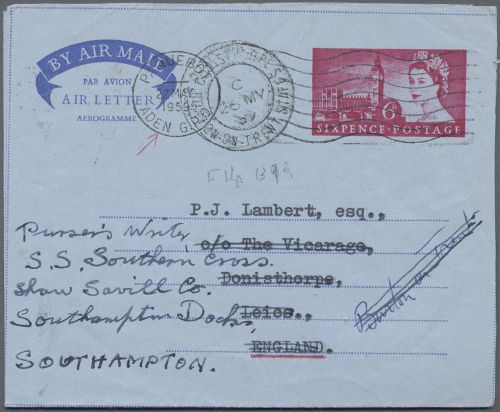 BY AIR MAIL
PAR AVION
AIR LETTER
AEROGRAMME
PAQUEBOT
22 MY
1959
C
MY
59
6D
SIXPENCE·POSTAGE
P.J. Lambert, esq.,
c/o The Vicarage,
Donisthorpe,
Leics.,
ENGLAND.
Purser's Writer
S.S. Southern Cross.
Shaw Savill Co.
Southampton Docks,
SOUTHAMPTON.
Burton on Trent